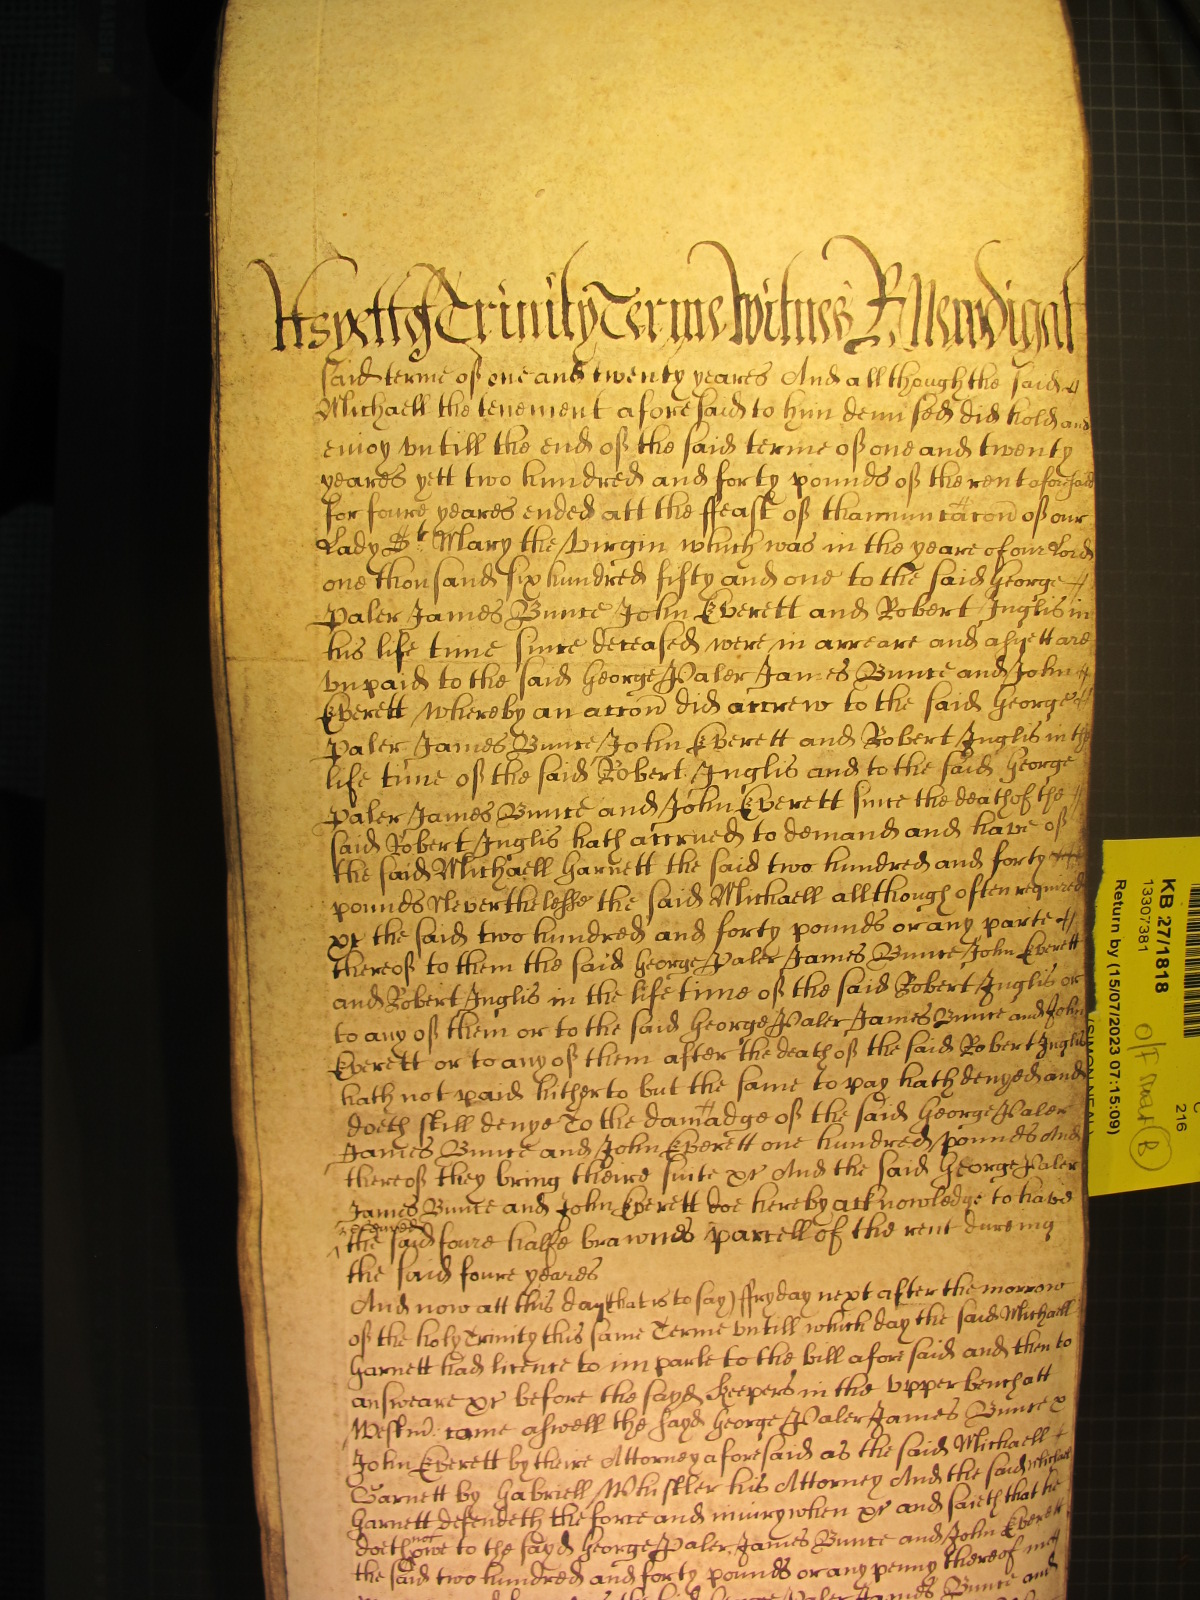 Trinity Terme Witnes R Newdigat
said terme of one and twenty yeares And allthough the said
Michaell the tenement aforesaid to him demised did hold and
enioy vntill the end of the said terme of one and twenty
yeares yett two hundred and forty pounds of the rent aforesaid
for foure yeares ended att the ffeast of thannuntacon of our
Lady St Mary the Virgin which was in the yeare of our Lord
one thousand six hundred fifty and one to the said George
Paler James Bunce John Everett and Robert Inglis in
his life time since deceased were in arreare and as yett are
vnpaid to the said George Paler James Bunce and John
Everett whereby an accon did accrew to the said George
Paler James Bunce John Everett and Robert Inglis in the
life time of the said Robert Inglis and to the said George
Paler James Bunce and John Everett since the death of the
said Robert Inglis hath accrued to demand and have of
the said Michaell Garnett the said two hundred and forty
pounds Neverthelesse the said Michaell allthough often required
xr the said two hundred and forty pounds or any parte
thereof to them the said George Paler James Bunce John Everett
and Robert Inglis in the life time of the said Robert Inglis or
to any of them or to the said George Paler James Bunce and John
Everett or to any of them after the death of the said Robert Inglis
hath not paid hitherto but the same to pay hath denyed and
doeth still denye To the damadge of the said George Paler
James Bunce and John Everett one hundred pounds And
thereof they bring theire suite xr And the said George Paler
James Bunce and John Everett doe hereby acknowledge to have
the said foure halfe brawnes parcell of the rent dureing
the said foure yeares
And now att this day (that is to say) ffryday next after the morrow
of the holy Trinity this same Terme vntill which day the said Michaell
Garnett had licence to imparle to the bill aforesaid and then to
answeare xr before the sayd Keepers in the vpper bench att
Westmr came aswell the sayd George Paler James Bunce
John Everett by theire Attorney aforesaid as the said Michaell
Garnett by Gabriell Whistler his Attorney And the said Michaell
Garnett defendeth the force and iniury when xr and saieth that he
doeth not owe to the sayd George Paler James Bunce and John Everett
the said two hundred and forty pounds or any penny thereof in
George Paler James Bunce and
KB 27/1818
13307381
Return by (15/07/2023 07:15:09)
216